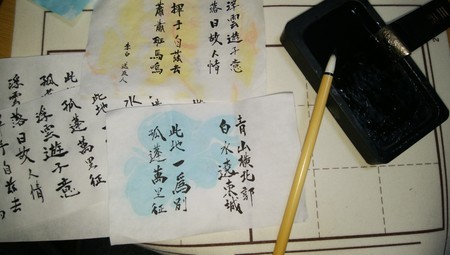 浮雲遊子意
落日故人情
揮手自茲去
蕭蕭班馬鳴
李白 送友人
青山橫北郭
白水遶東城
此地一為別
孤蓬萬里征
水
此地
此
孤蓬萬里征
孤
浮雲遊子意
浮雲
落日故人情
手自茲去